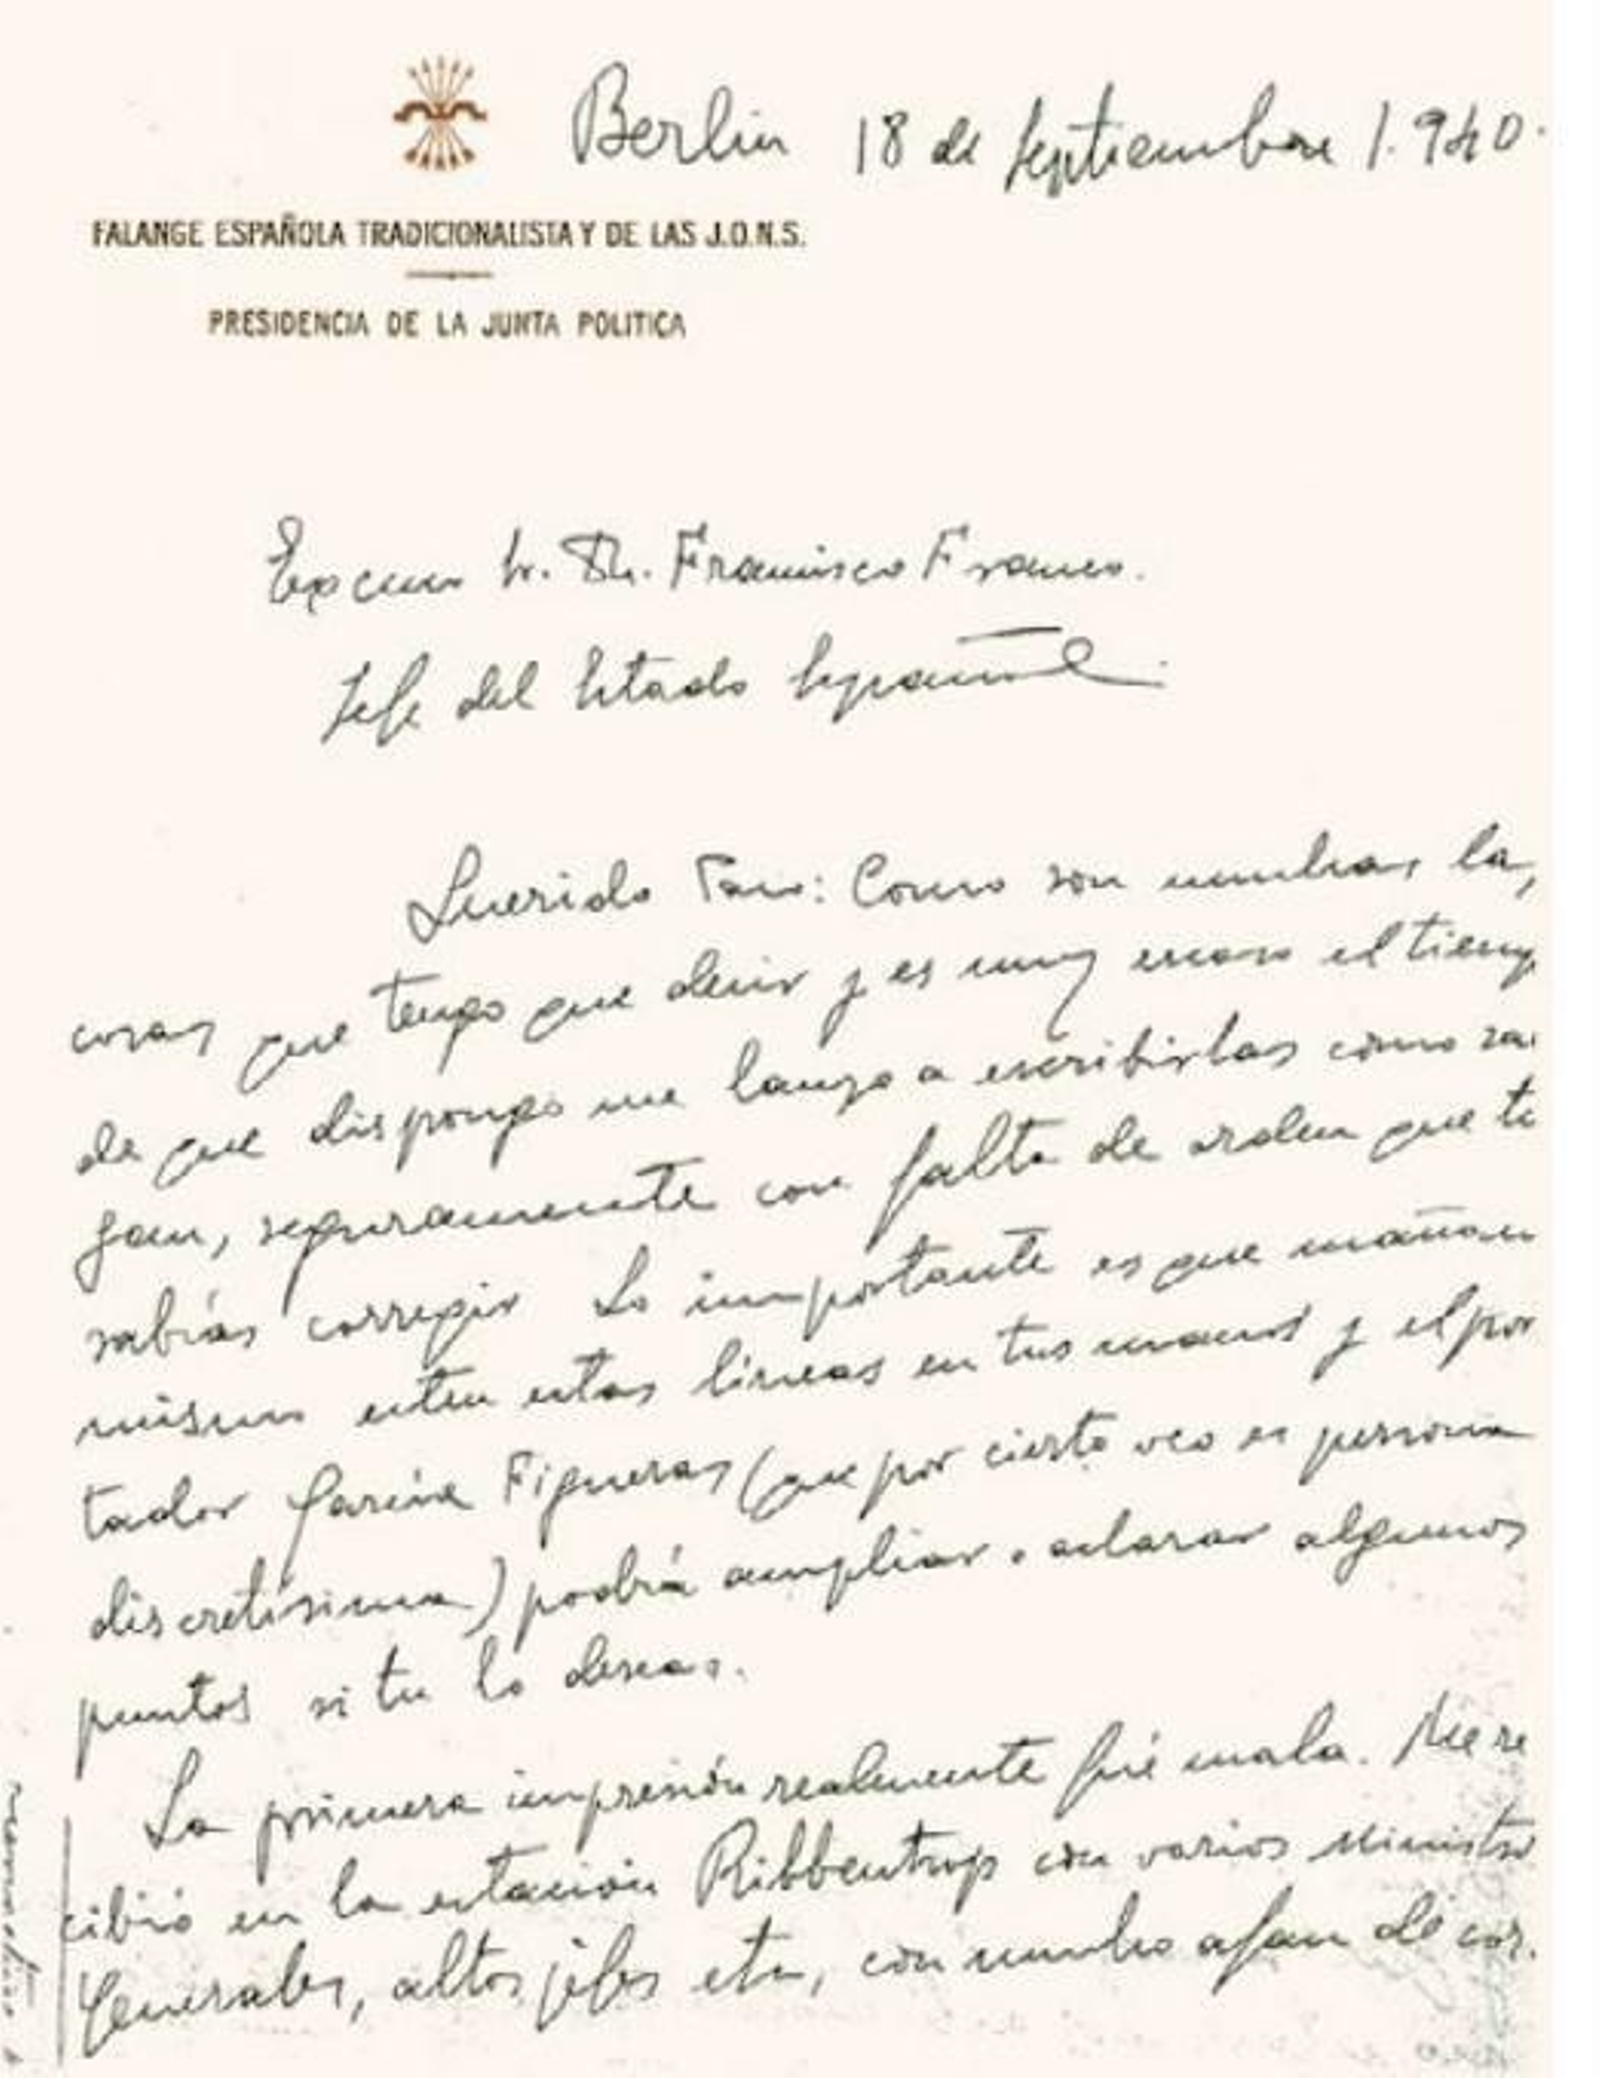 Berlin 18 de Septiembre 1.940.
FALANGE ESPAÑOLA TRADICIONALISTA Y DE LAS J.O.N.S.
PRESIDENCIA DE LA JUNTA POLITICA
Excmo Sr. Dn. Francisco Franco.
Jefe del Estado Español.
Querido Paco: Como son muchas las
cosas que tengo que decir y es muy escaso el tiemp
de que dispongo me lanzo a escribirlas como sal
gan, seguramente con falta de orden que tu
sabrás corregir Lo importante es que mañana
mismo esten estas lineas en tus manos y el por
tador García Figueras (que por cierto veo es persona
discretísima) podrá ampliar o aclarar algunos
puntos si tu lo deseas.
La primera impresión realmente fué mala. Me re
cibió en la estación Ribbentrop con varios Ministro
Generales, altos jefes etc, con mucho afan de cor.